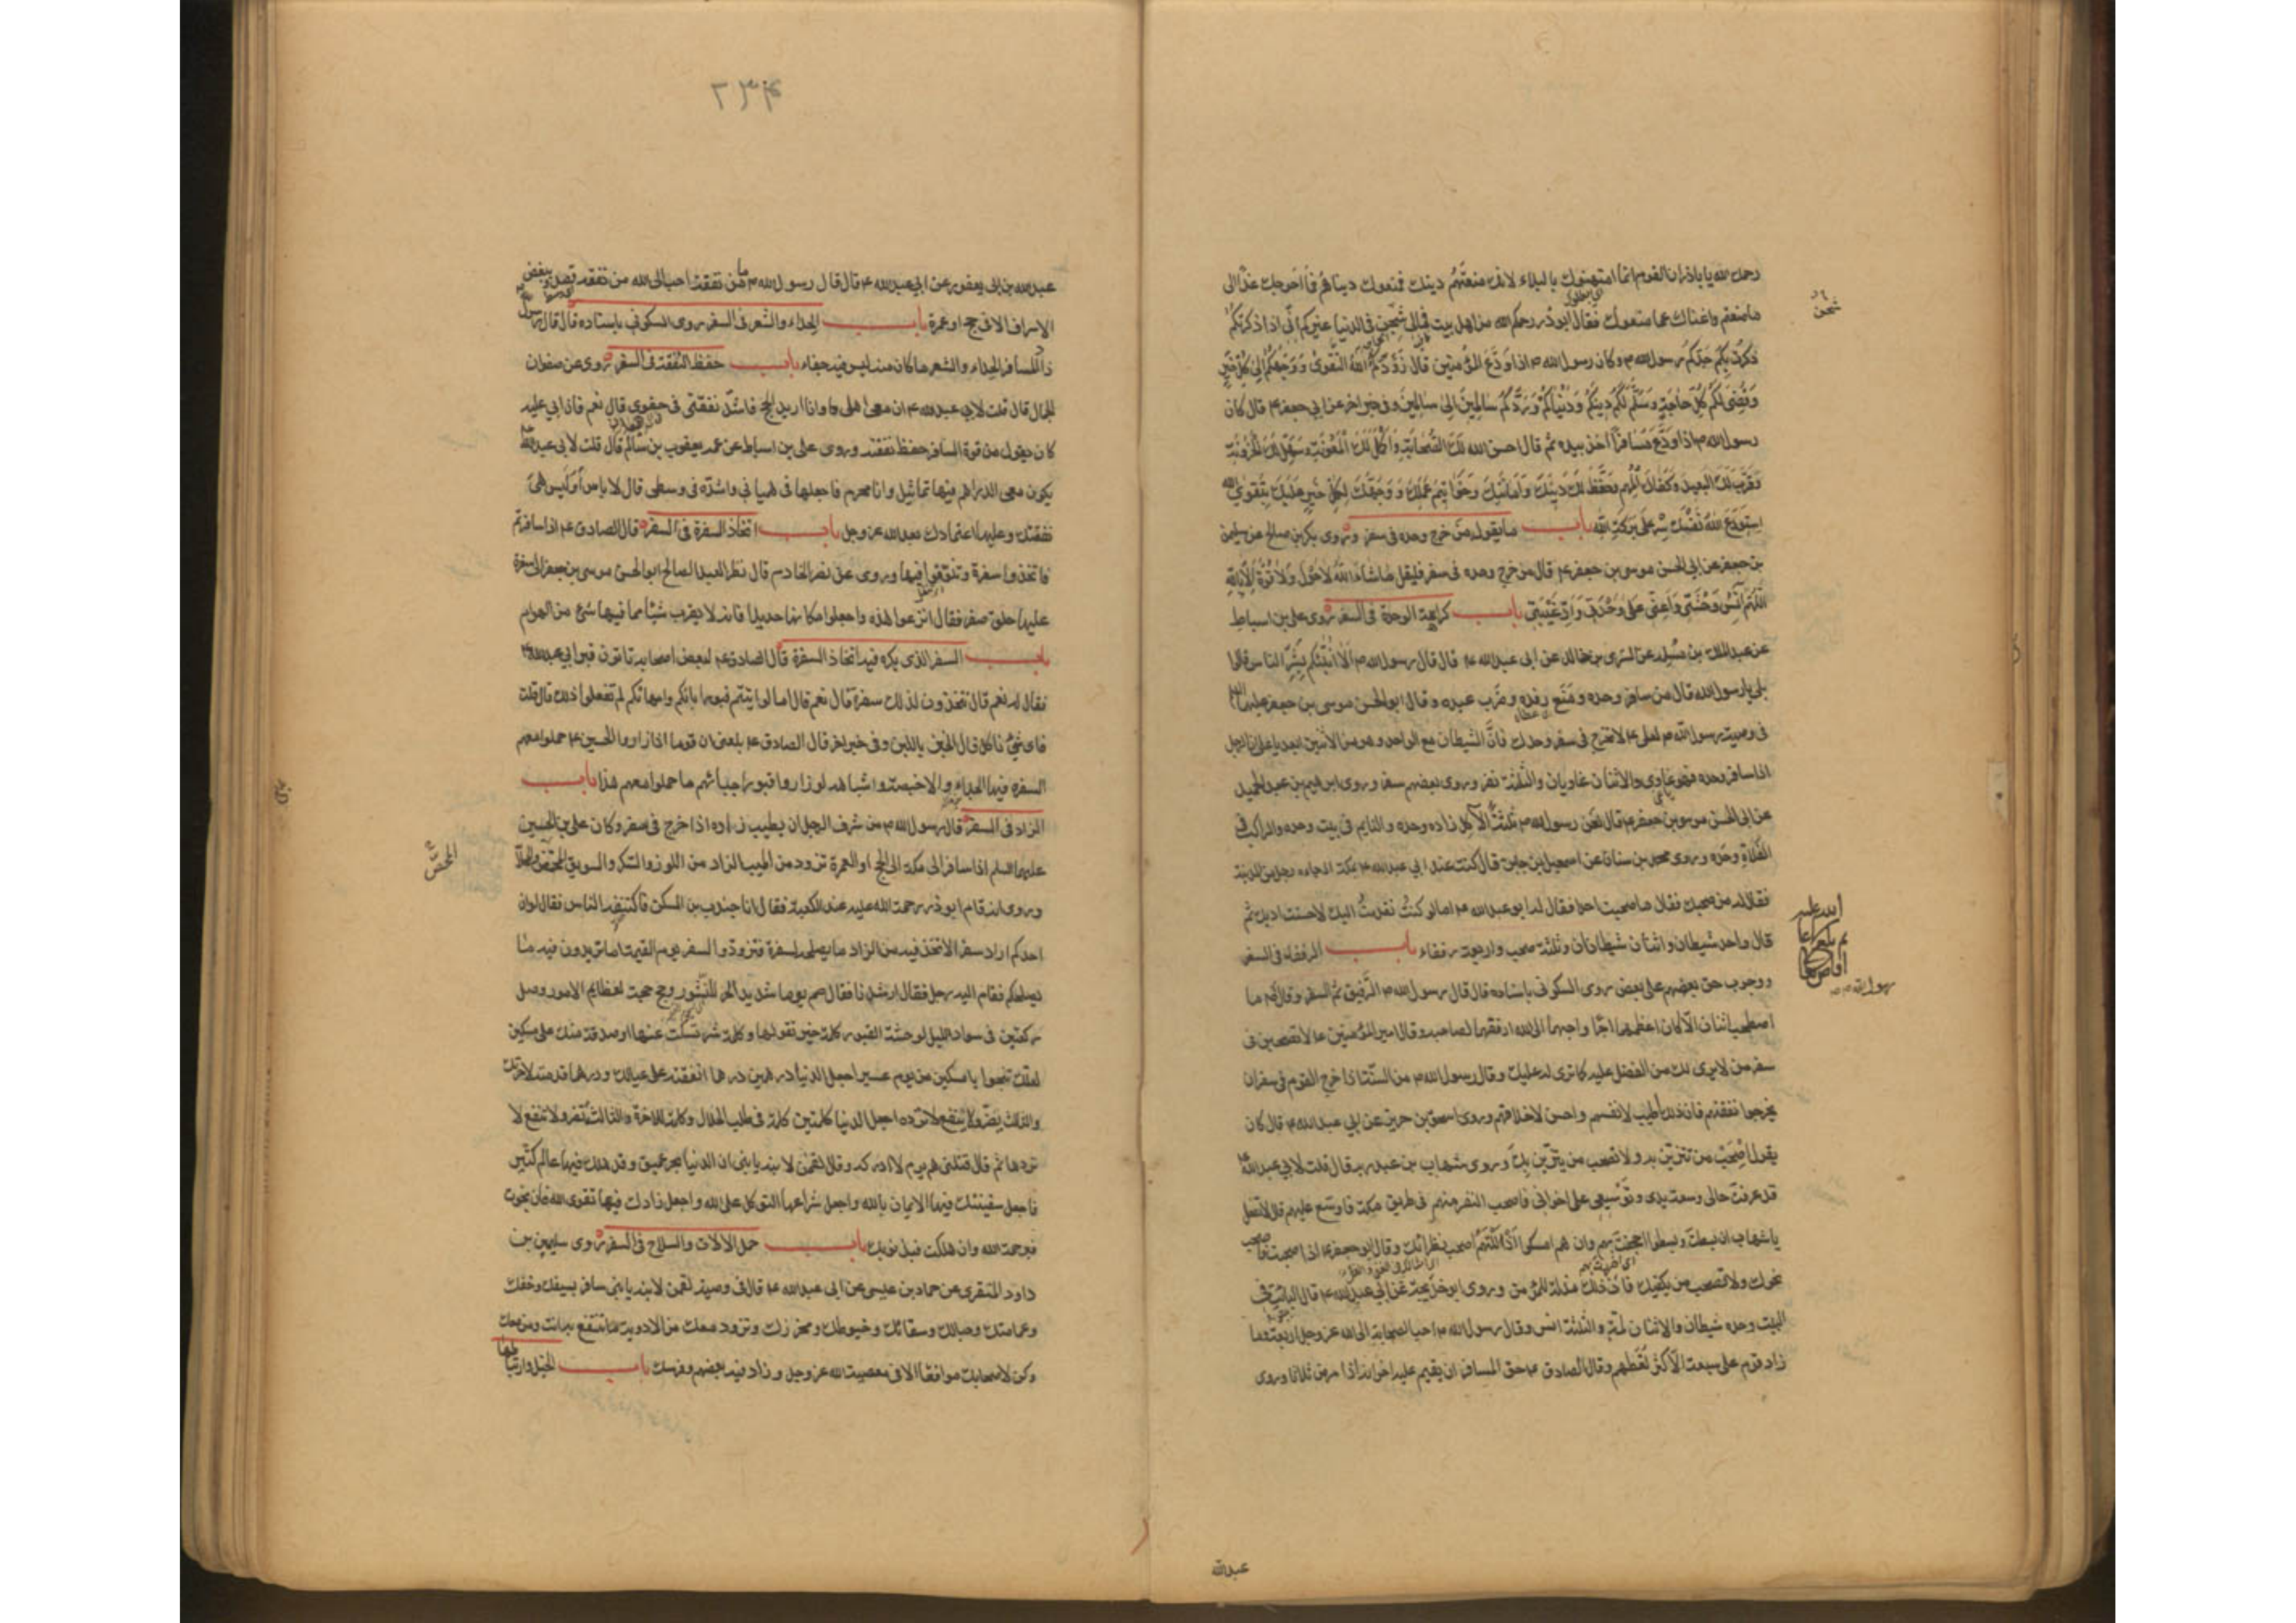 رحمك الله يا باذر ان القوم انما امتهنوك بالبلاء لانك منعتهم دينك فمنعوك دنياهم فما احوجك غدا الى
ما منعتهم واغناك عما منعوك فقال ابوذر رحمكم الله من اهل بيت فمالى شجن فى الدنيا غيركم انى اذا ذكرتكم
ذكرت بكم جدكم رسول الله ص وكان رسول الله ص اذا ودع المؤمنين قال زودكم الله التقوى ووجهكم الى كل خير
وقضى لكم كل حاجة وسلم لكم دينكم ودنياكم وردكم سالمين الى سالمين وفى خبر اخر عن ابى جعفر ع قال كان
رسول الله ص اذا ودع مسافرا اخذ بيده ثم قال احسن الله لك الصحابة واكمل لك المعونة وسهل لك الحزونة
وقرب لك البعيد وكفاك المهم وحفظ لك دينك وامانتك وخواتيم عملك ووجهك لكل خير عليك بتقوى الله
استودع الله نفسك سر على بركة الله باب ما يقوله من خرج وحده فى سفر روى بكر بن صالح عن سليمن
بن جعفر عن ابى الحسن موسى بن جعفر ع قال من خرج وحده فى سفر فليقل ما شاء الله لا حول ولا قوة الا بالله
اللهم انس وحشتى واعنى على وحدتى واد غيبتى باب كراهة الوحدة فى السفر روى على بن اسباط
عن عبد الملك بن مسلمة عن السرى بن خالد عن ابى عبد الله ع قال قال رسول الله ص الا انبئكم بشر الناس قالوا
بلى يا رسول الله قال من سافر وحده ومنع رفده وضرب عبده وقال ابو الحسن موسى بن جعفر عليهما
فى وصية رسول الله ص لعلى ع لا تخرج فى سفر وحدك فان الشيطان مع الواحد وهو من الاثنين ابعد يا على ان الرجل
اذا سافر وحده فهو غاوى والاثنان غاويان والثلثة نفر وروى بعضهم سفر وروى ابرهيم بن عبد الحميد
عن ابى الحسن موسى بن جعفر ع قال لعن رسول الله ص ثلثة الاكل زاده وحده والنايم فى بيت وحده والراكب فى
الفلاة وحده وروى محمد بن سنان عن اسمعيل بن جابر قال كنت عند ابى عبد الله ع بمكة اذ جاءه رجل من المدينة
فقال له من صحبك فقال ما صحبت احدا فقال له ابو عبد الله ع اما لو كنت تقدمت اليك لاحسنت ادبك ثم
قال واحد شيطان واثنان شيطانان وثلثة صحب واربعة رفقاء باب الرفقاء فى السفر
ووجوب حق بعضهم على بعض روى السكونى باسناده قال قال رسول الله ص الرفيق ثم السفر وقال ص ما
اصطحب اثنان الا كان اعظمهما اجرا واحبهما الى الله ارفقهما لصاحبه وقال امير المؤمنين ع لا تصحبن فى
سفر من لا يرى لك من الفضل عليه كما ترى له عليك وقال رسول الله ص من السنة اذا خرج القوم فى سفر ان
يخرجوا نفقتهم فان ذلك اطيب لانفسهم واحسن لاخلاقهم وروى اسحق بن حريز عن ابى عبد الله ع قال كان
يقول اصحب من تتزين به ولا تصحب من يتزين بك وروى شهاب بن عبد ربه قال قلت لابى عبد الله ع
قد عرفت حالى وسعة يدى وتوسيعى على اخوانى فاصحب النفر منهم فى طريق مكة فاوسع عليهم قال لا تفعل
يا شهاب ان بسطت وبسطوا اجحفت بهم وان هم امسكوا اذللتهم اصحب نظرائك وقال ابو جعفر ع اذا صحبت فاصحب
نحوك ولا تصحب من يكفيك فان ذلك مذلة للمؤمن وروى ابو خديجة عن ابى عبد الله ع قال البائت فى
البيت وحده شيطان والاثنان لمة والثلثة انس وقال رسول الله ص احب الصحابة الى الله عز وجل اربعة وما
زاد قوم على سبعة الا كثر لغطهم وقال الصادق ع حق المسافر ان يقيم عليه اخوانه اذا مرض ثلاثا وروى
شجن
عبد الله
٢٣٤
عبد الله بن ابى يعفور عن ابى عبد الله ع قال قال رسول الله ص ما من نفقة احب الى الله من نفقة قصد ويبغض
الاسراف الا فى حج او عمرة باب الحداء والشعر فى السفر روى السكونى باسناده قال قال رسول
زاد المسافر الحداء والشعر ما كان منه ليس فيه جفاء باب حفظ النفقة فى السفر روى عن صفوان
الجمال قال قلت لابى عبد الله ع ان معى اهلى وانا اريد الحج فاشد نفقتى فى حقوى قال نعم فان ابى عليه
كان يقول من قوة المسافر حفظ نفقته وروى على بن اسباط عن عمه يعقوب بن سالم قال قلت لابى عبد الله
يكون معى الدراهم فيها تماثيل وانا محرم فاجعلها فى هميانى واشده فى وسطى قال لا باس اوليس هى
نفقتك وعليها اعتمادك بعد الله عز وجل باب اتخاذ السفرة فى السفر قال الصادق ع اذا سافرتم
فاتخذوا سفرة وتنوقوا فيها وروى عن نصر الخادم قال نظر العبد الصالح ابو الحسن موسى بن جعفر الى سفرة
عليها حلق صفر فقال انزعوا هذه واجعلوا مكانها حديدا فانه لا يقرب شيئا مما فيها شئ من الهوام
باب السفر الذى يكره فيه اتخاذ السفرة قال الصادق ع لبعض اصحابه تاتون قبر ابى عبد الله ع
فقال له نعم قال تتخذون لذلك سفرة قال نعم قال اما لو اتيتم قبور ابائكم وامهاتكم لم تفعلوا ذلك قال قلت
فاى شئ ناكل قال الخبز باللبن وفى خبر اخر قال الصادق ع بلغنى ان قوما اذا زاروا الحسين ع حملوا معهم
السفرة فيها الجداء والاخبصة واشباهه لو زاروا قبور احبائهم ما حملوا معهم هذا باب
الزاد فى السفر قال رسول الله ص من شرف الرجل ان يطيب زاده اذا خرج فى سفر وكان على بن الحسين
عليهما السلم اذا سافر الى مكة الى الحج او العمرة تزود من اطيب الزاد من اللوز والسكر والسويق المحمض والمحلا
وروى انه قام ابوذر رحمة الله عليه عند الكعبة فقال انا جندب بن السكن فاكتنفه الناس فقال لو ان
احدكم اراد سفرا لاتخذ فيه من الزاد ما يصلحه لسفره فتزودوا لسفر يوم القيمة اما تريدون فيه ما
يصلحكم فقام اليه رجل فقال ارشدنا فقال صم يوما شديد الحر للنشور وحج حجة لعظايم الامور وصل
ركعتين فى سواد الليل لوحشة القبور كلمة خير تقولها وكلمة شر تسكت عنها او صدقة منك على مسكين
لعلك تنجوا يا مسكين من يوم عسير اجعل الدنيا درهمين درهما انفقته على عيالك ودرهما قدمته لاخرتك
والثالث يضر ولا ينفع لا ترده اجعل الدنيا كلمتين كلمة فى طلب الحلال وكلمة للاخرة والثالثة تضر ولا تنفع لا
تردها ثم قال قتلنى هم يوم لا ادركه وقال لقمن لابنه يا بنى ان الدنيا بحر عميق وقد هلك فيها عالم كثير
فاجعل سفينتك فيها الايمان بالله واجعل شراعها التوكل على الله واجعل زادك فيها تقوى الله فان نجوت
فبرحمة الله وان هلكت فبذنوبك باب حمل الالات والسلاح فى السفر روى سليمن بن
داود المنقرى عن حماد بن عيسى عن ابى عبد الله ع قال فى وصية لقمن لابنه يا بنى سافر بسيفك وخفك
وعمامتك وحبالك وسقائك وخيوطك ومخرزك وتزود معك من الادوية ما تنتفع به انت ومن معك
وكن لاصحابك موافقا الا فى معصية الله عز وجل وزاد فيه بعضهم وفرسك باب الخيل وارتباطها